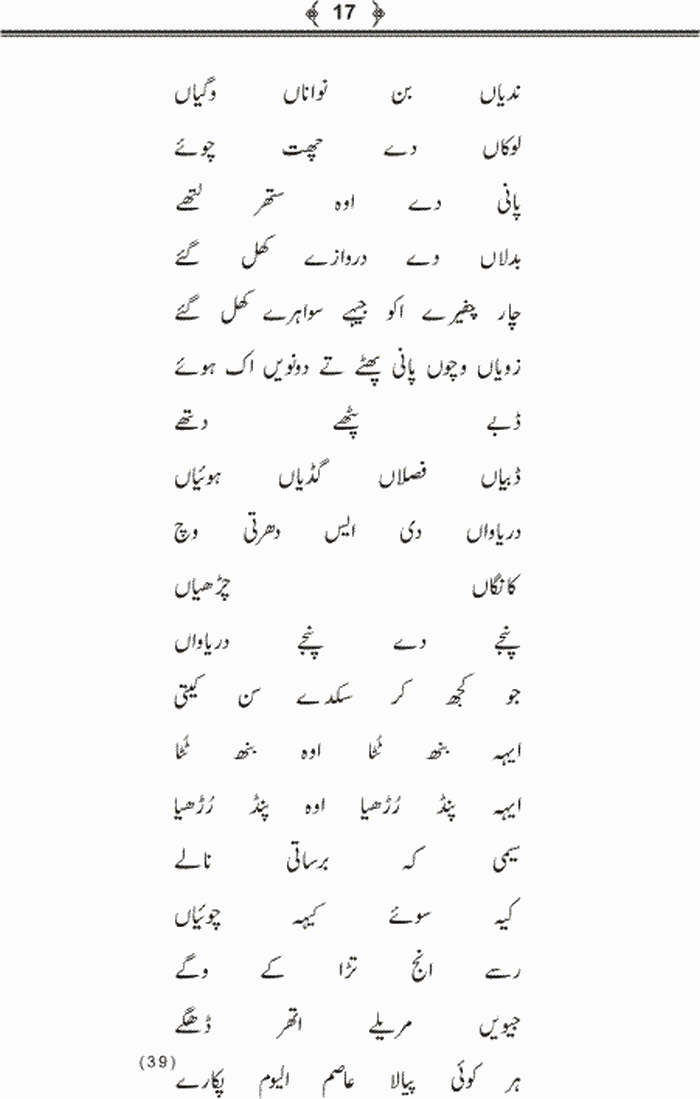 17
ندیاں بن نواناں وگیاں
لوکاں دے چھت چوئے
پانی دے اوہ ستھر لتھے
بدلاں دے دروازے کھل گئے
چار چفیرے اکو جیہے سواہرے کھل گئے
زویاں وچوں پانی پھٹے تے دونویں اک ہوئے
ڈبے پٹھے دتھے
ڈبیاں فصلاں گڈیاں ہوئیاں
دریاواں دی ایس دھرتی وچ
کانگاں چڑھیاں
پنجے دے پنجے دریاواں
جو کجھ کر سکدے سن کیتی
ایہہ بنھ ٹٹا اوہ بنھ ٹٹا
ایہہ پنڈ رُڑھیا اوہ پنڈ رُڑھیا
سیمی کہ برساتی نالے
کیہ سوئے کیہہ چوئیاں
رسے انج تڑا کے وگے
جیویں مریلے اتھر ڈھگے
ہر کوئی پیالا عاصم الیوم پکارے (39)